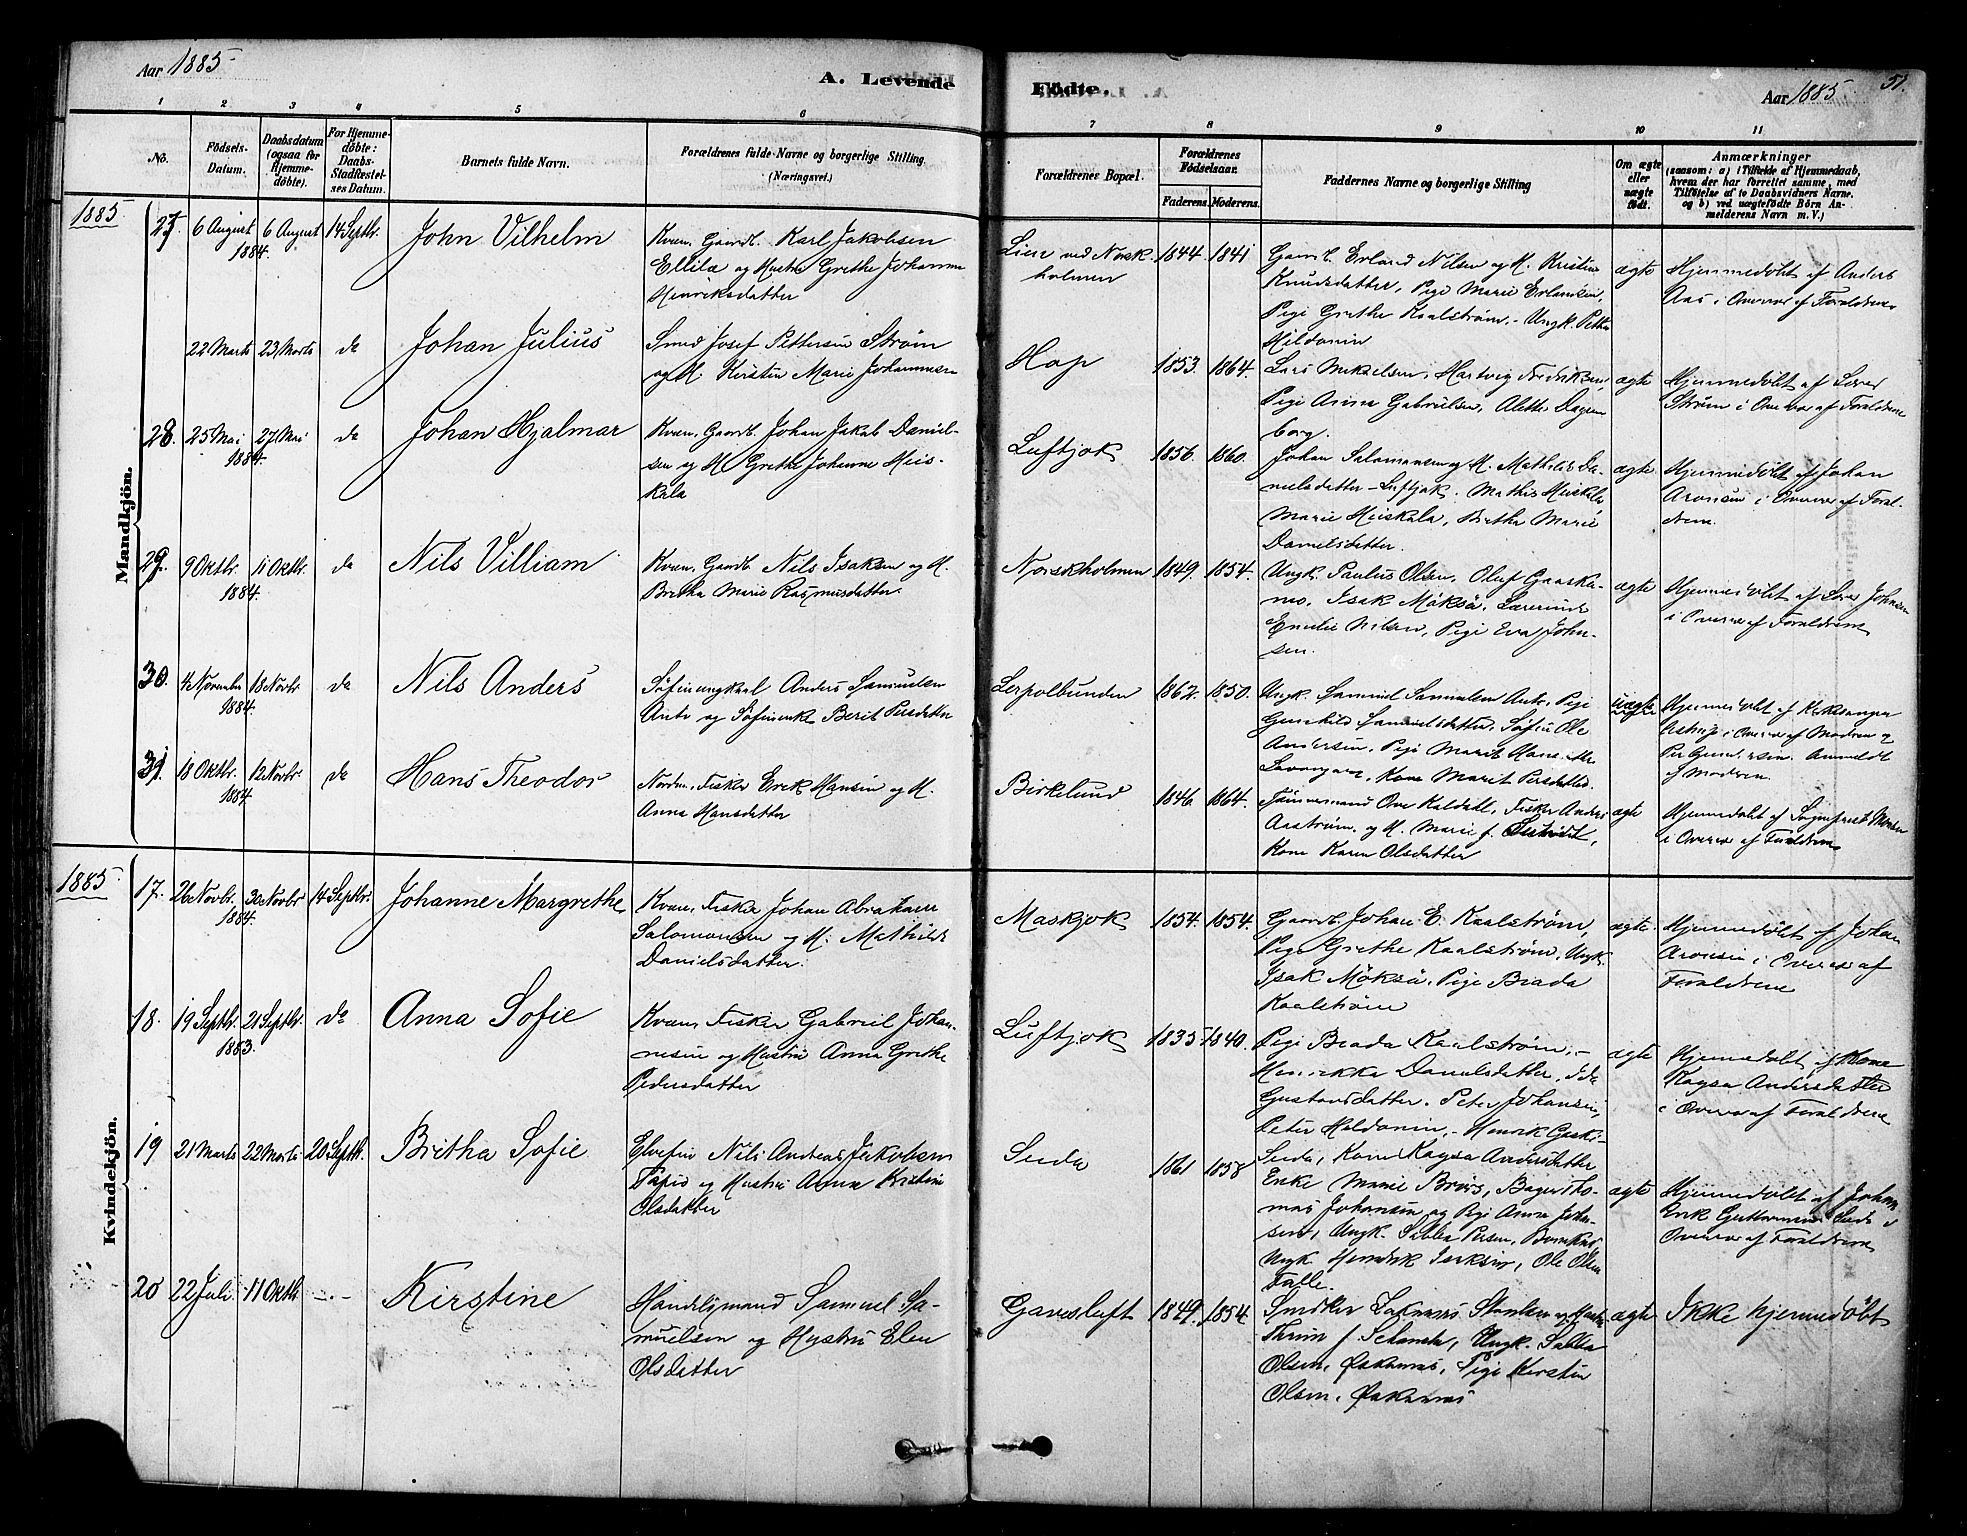 Aar 1885
A. Levende
Födte.
Aar 1885
51.
1 2 3 4 5 6 7 8 9 10 11
No.
Födsels-
Datum.
Daabsdatum
(ogsaa for
Hjemme-
döbte).
For Hjemme-
döbte:
Daabs-
Stadfæstel-
ses Datum.
Barnets fulde Navn.
Forældrenes fulde Navne og borgerlige Stilling.
(Næringsvei.)
Forældrenes Bopæl.
Forældrenes
Födselsaar.
Faderens. Moderens.
Faddernes Navne og borgerlige Stilling
Om ægte
eller
uægte
födt.
Anmærkninger
(saasom: a) i Tilfælde af Hjemmedaab,
hvem der har forrettet samme, med
Tilföielse af to Daabsvidners Navne,
og b) ved uægtefödte Börn An-
melderens Navn m. V.)
Mandkjön.
1885
27. 6 August 1884. 6 August 14 Septbr.
John Vilhelm
Kvæn, Gaardb. Karl Jakobsen
Ellila og Hustru Grethe Johanne
Henriksdatter
Lien ved Norsk-
holmen
1844. 1841
Gaardb. Erland Nilsen og H. Kristine
Knudsdatter, Pige Marie Erlandsen,
Pige Grethe Kaalstrøm, - Ungk. Petter
Hildonin
ægte
Hjemmedøbt af Anders
Aas i Overvær af Forældrene
22 Marts 23 Marts da
Johan Julius
Smed Josef Pettersen Strøm
og H. Kirsten Marie Johannesen
Hop
1853. 1864.
Lars Mikkelsen, Hartvig Fredriksen,
Pige Anna Gabrielsen, Alette Dagen-
borg.
ægte
Hjemmedøbt af Lærer
Strøm i Overvær af Forældrene
28. 25 Mai 1884. 27 Mai da
Johan Hjalmar
Kvæn, Gaardb. Johan Jakob Daniel-
sen og H. Grethe Johanne Heis-
kala
Luftjok
1856. 1860.
Johan Salomonsen og H. Mathilde Da-
nielsdatter - Luftjok. Mathis Heiskala
Marie Heiskala, Brita Marie
Danielsdatter.
ægte.
Hjemmedøbt af Johan
Aronsen i Overvær af Foræl-
drene.
29. 9 Oktbr. 1884. 11 Oktbr. da
Nils Villiam
Kvæn, Gaardb. Nils Isaksen og H.
Bretha Marie Rasmusdatter.
Norskholmen
1849. 1854.
Ungk. Paulus Olsen, Oluf Gaaska-
mo, Isak Möksö, Lærerinde
Emilie Nilsen, Pige Eva John-
sen.
ægte
Hjemmedøbt af Lærer Johnsen
i Overvær af Forældrene
30. 4 Novembr 1884. 18 Novbr. da
Nils Anders
Søfinungkarl Anders Samuelsen
Anti og Søfinenke Berit Persdatter
Lerpolbunden
1862. 1850.
Ungk. Sammuel Samuelsen Anti, Pige
Gunhild Samuelsdatter, Søfin Ole
Andersen, Pige Marit Hans.
Kone Marit Persdatter.
uægte
Hjemmedøbt af Kirkesanger
i Overvær af Modren og
Per Anmeldt
af Modren.
31. 18 Oktbr. 1884. 12 Novbr. da
Hans Theodor
Nordm. Fisker Erik Hansen og H.
Anna Hansdatter
Birkelund
1846. 1864.
Tømmermand Ove Kaldahl, Fisker Anders
Aastrøm, og H. Marie f.
Kone Karen Olsdatter
ægte
Hjemmedøbt af Sognepræst
i Overvær af Forældrene
Kvindekjön.
1885
17. 26 Novbr. 1884. 30 Novbr 14 Septbr.
Johanne Margrethe
Kvæn, Fisker Johan Abraham
Salomonsen og H. Mathilde
Danielsdatter.
Maskjok
1854. 1854.
Gaardb. Johan E. Kaalstrøm,
Pige Grethe Kaalstrøm, Ungk.
Isak Möksö, Pige Brada
Kaalstrøm
ægte.
Hjemmedøbt af Johan
Aronsen i Overvær af
Forældrene
18. 19 Septbr. 1883. 21 Septbr. da
Anna Sofie
Kvæn, Fisker Gabriel Johan-
nesen og Hustru Anna Grethe
Pedersdatter
Luftjok
1835 1840.
Pige Brada Kaalstrøm, -
Henrikka Danielsdatter, Ida
Gustavsdatter. Peter Johansen,
Peter Haldonin, - Henrik
Kone Kaysa Andersdatter
ægte
Hjemmedøbt af Kone
Kaysa Andersdatter
i Overvær af Forældrene
19 21 Marts 22 Marts 20 Septbr.
Bretha Sofie
Elvefin Nils Andreas Jakobsen
Papio og Hustru Anna Kristine
Olsdatter
Seida
1861 1858
Enke Marie Briis, Bager Tho-
mas Johansen og Pige Anna Johan-
sen, Ungk. Sabba Persen,
Ungk Hendrik Isaksen, Ole Olsen
Talle.
ægte
Hjemmedøbt af Johan
Erik Guttormsen Seida i
Overvær af Forældrene
20 22 Juli 11 Oktbr -.-
Kirstine
Handelsmand Samuel Sa-
muelsen og Hustru Elen
Olsdatter
Gavesluft
1849. 1854.
Snedker Zakarias og Hustru
Thrine f. Schanche, Ungk. Sabba
Olsen, Pige Kirsten
Olsen,
ægte
Ikke hjemmedøbt